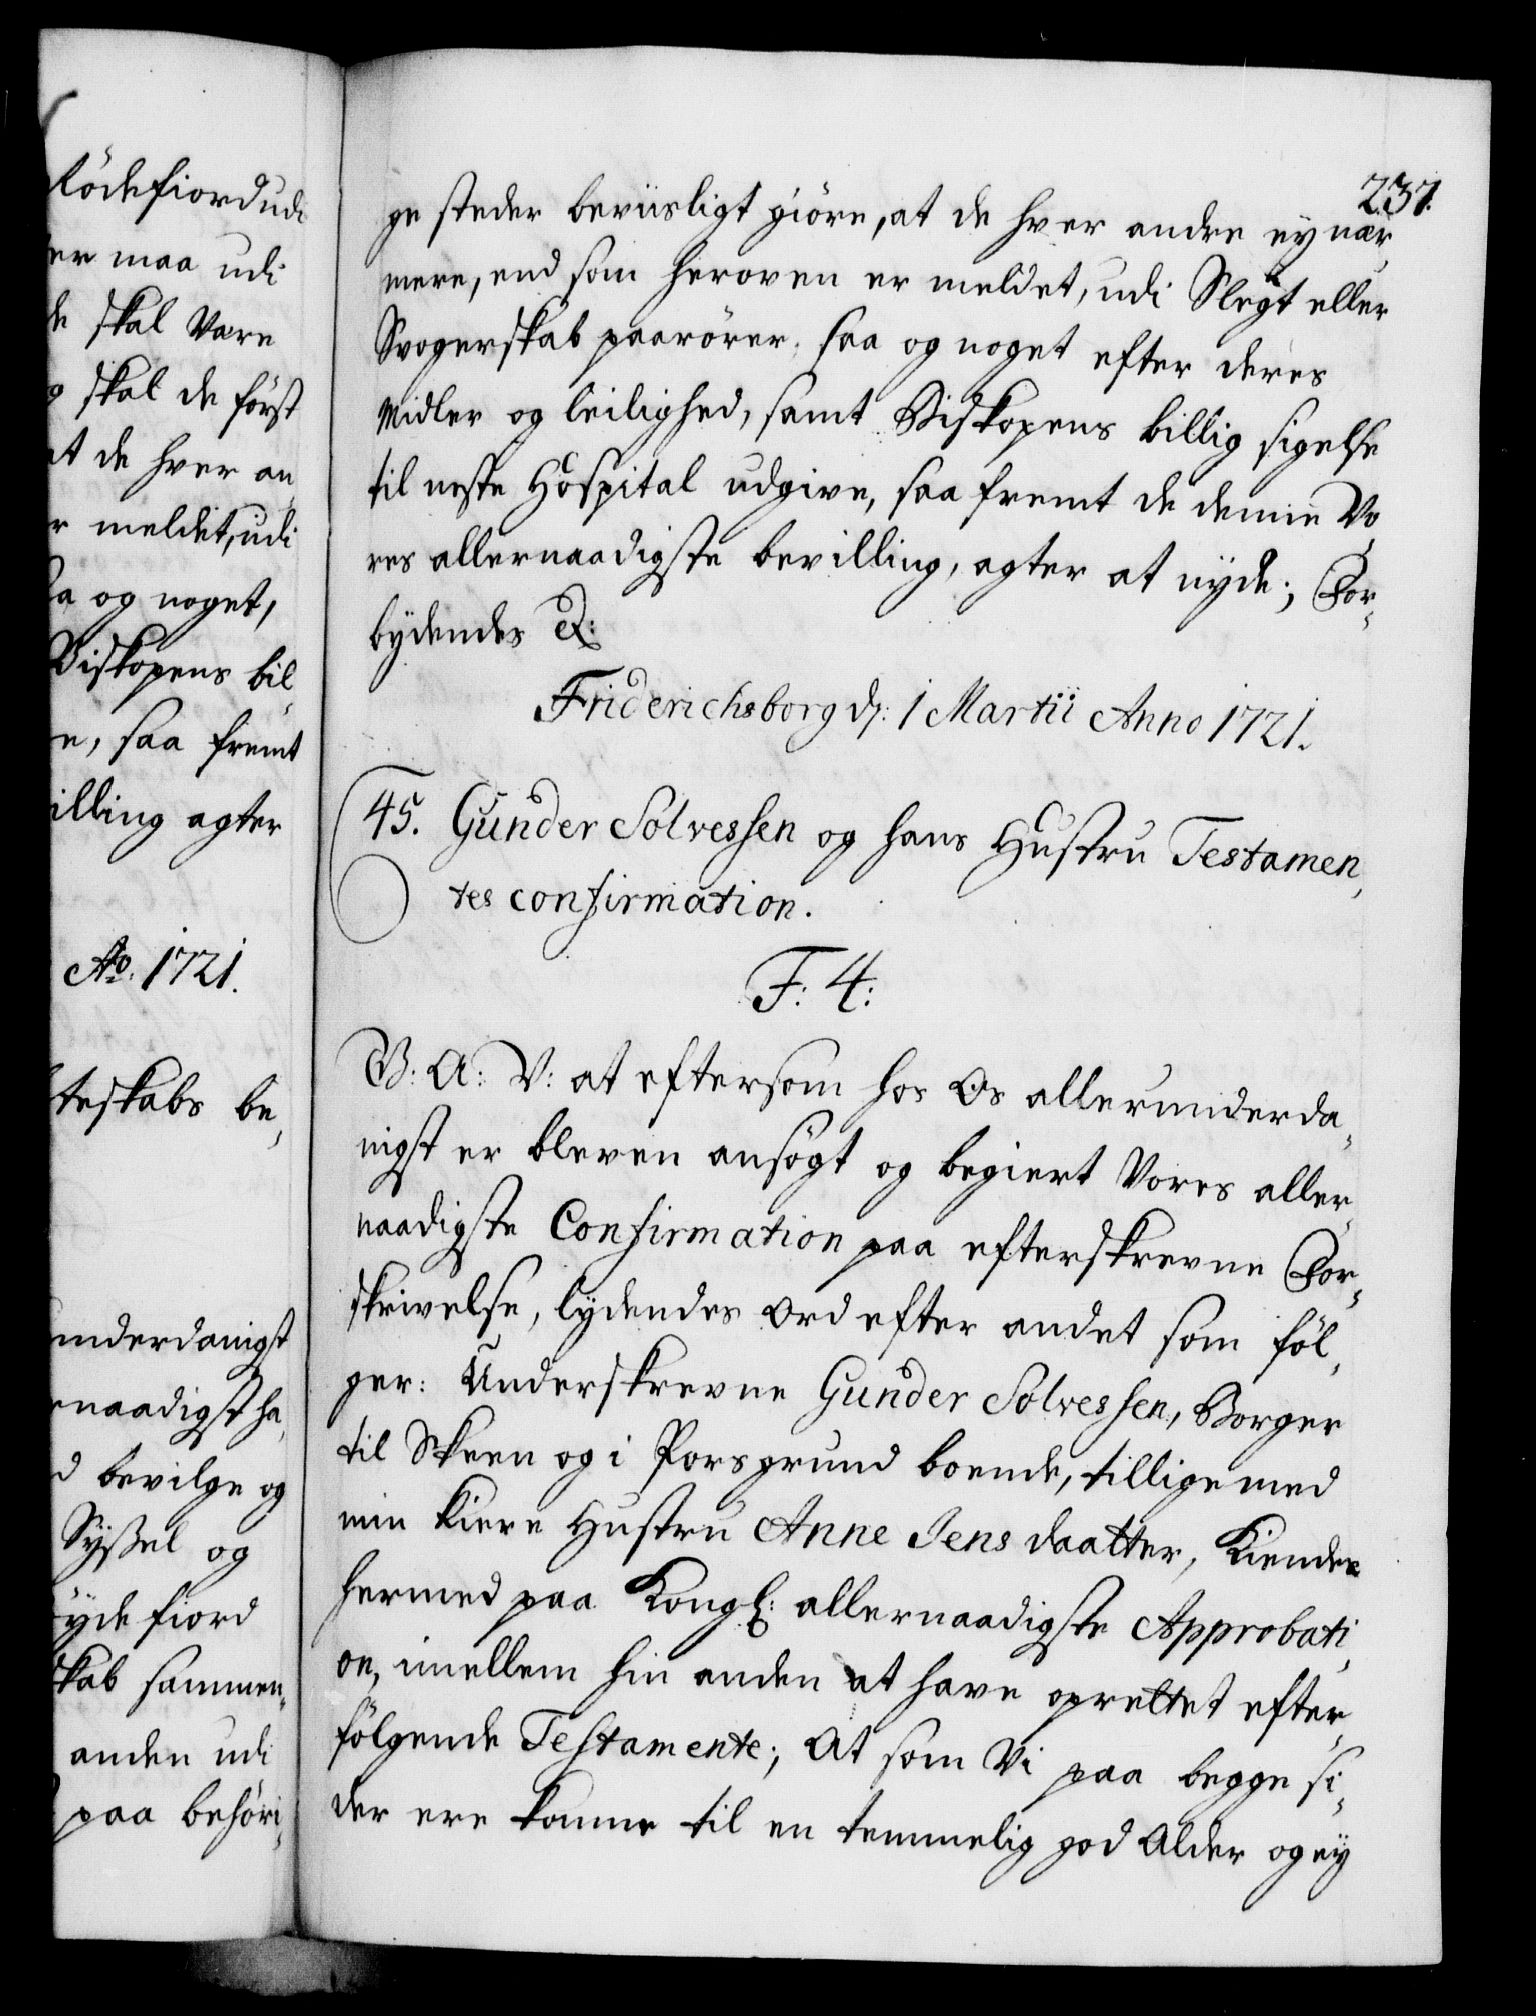 Rödefiord udi
er maa udi
de skal være
g skal de först
at de hver an„
r meldet, udi
saa og noget,
Biskopens bil„
e, saa fremt
illing agter
Ao. 1721.
teskabs be„
underdanigst
naadigst ha„
d bevilge og
Syssel og
yde fiord
skab sammen„
anden udi
paa behöri„
237.
ge steder beviisligt giöre, at de hver andre ey nær„
mere, end som heroven er meldet, udi Slegt eller
Svogerskab paarörer; saa og noget efter deres
Midler og leilighed, samt Biskopens billig sigelse
til neste Hospital udgive, saa fremt de denne Vo„
res allernaadigste bevilling, agter at nyde; For„
bydendes &:
Friderichsborg d: 1 Martii Anno 1721.
45. Gunder Solvessen og hans Hustru Testamen„
tes confirmation.
F: 4:
G: A: V: at eftersom hos Os allerunderda„
nigst er bleven ansögt og begiert Vores aller„
naadigste Confirmation paa efterskrevne For„
skrivelse, lydendes Ord efter andet som föl„
ger: Underskrevne Gunder Solvessen, Borger
til Skeen og i Porsgrund boende, tillige med
min Kiere Hustru Anne Jens daatter, Kiendes
hermed paa Kongl: allernaadigste Approbati„
on, imellem hin anden at have oprettet efter„
fölgende Testamente; At som Vi paa begge si„
der ere komne til en temmelig god Alder og ey